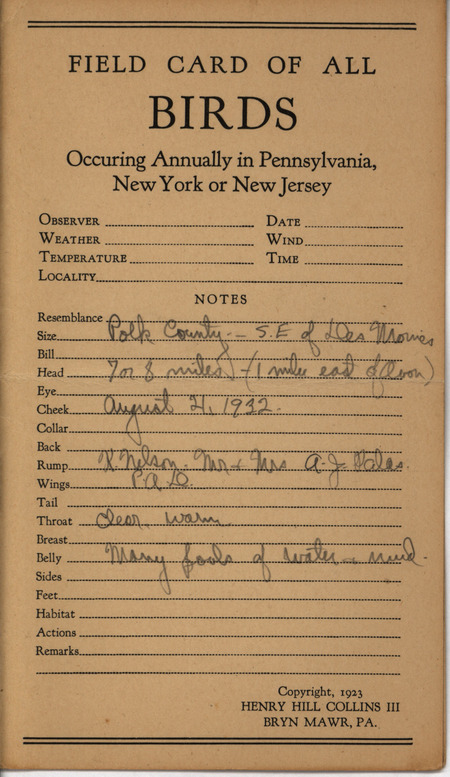 FIELD CARD OF ALL
BIRDS
Occuring Annually in Pennsylvania,
New York or New Jersey
OBSERVER DATE
WEATHER WIND
TEMPERATURE TIME
LOCALITY
NOTES
Resemblance
Size Polk County — S.E of Des Moines
Bill
Head 7 or 8 miles - (1 mile east of Avon)
Eye
Cheek August 21, 1932.
Collar
Back
Rump K. Nelson. Mr & Mrs A. J.
Wings P.A.D.
Tail
Throat clear, warm
Breast
Belly Many pools of water & mud.
Sides
Feet
Habitat
Actions
Remarks
Copyright, 1923
HENRY HILL COLLINS III
BRYN MAWR, PA.